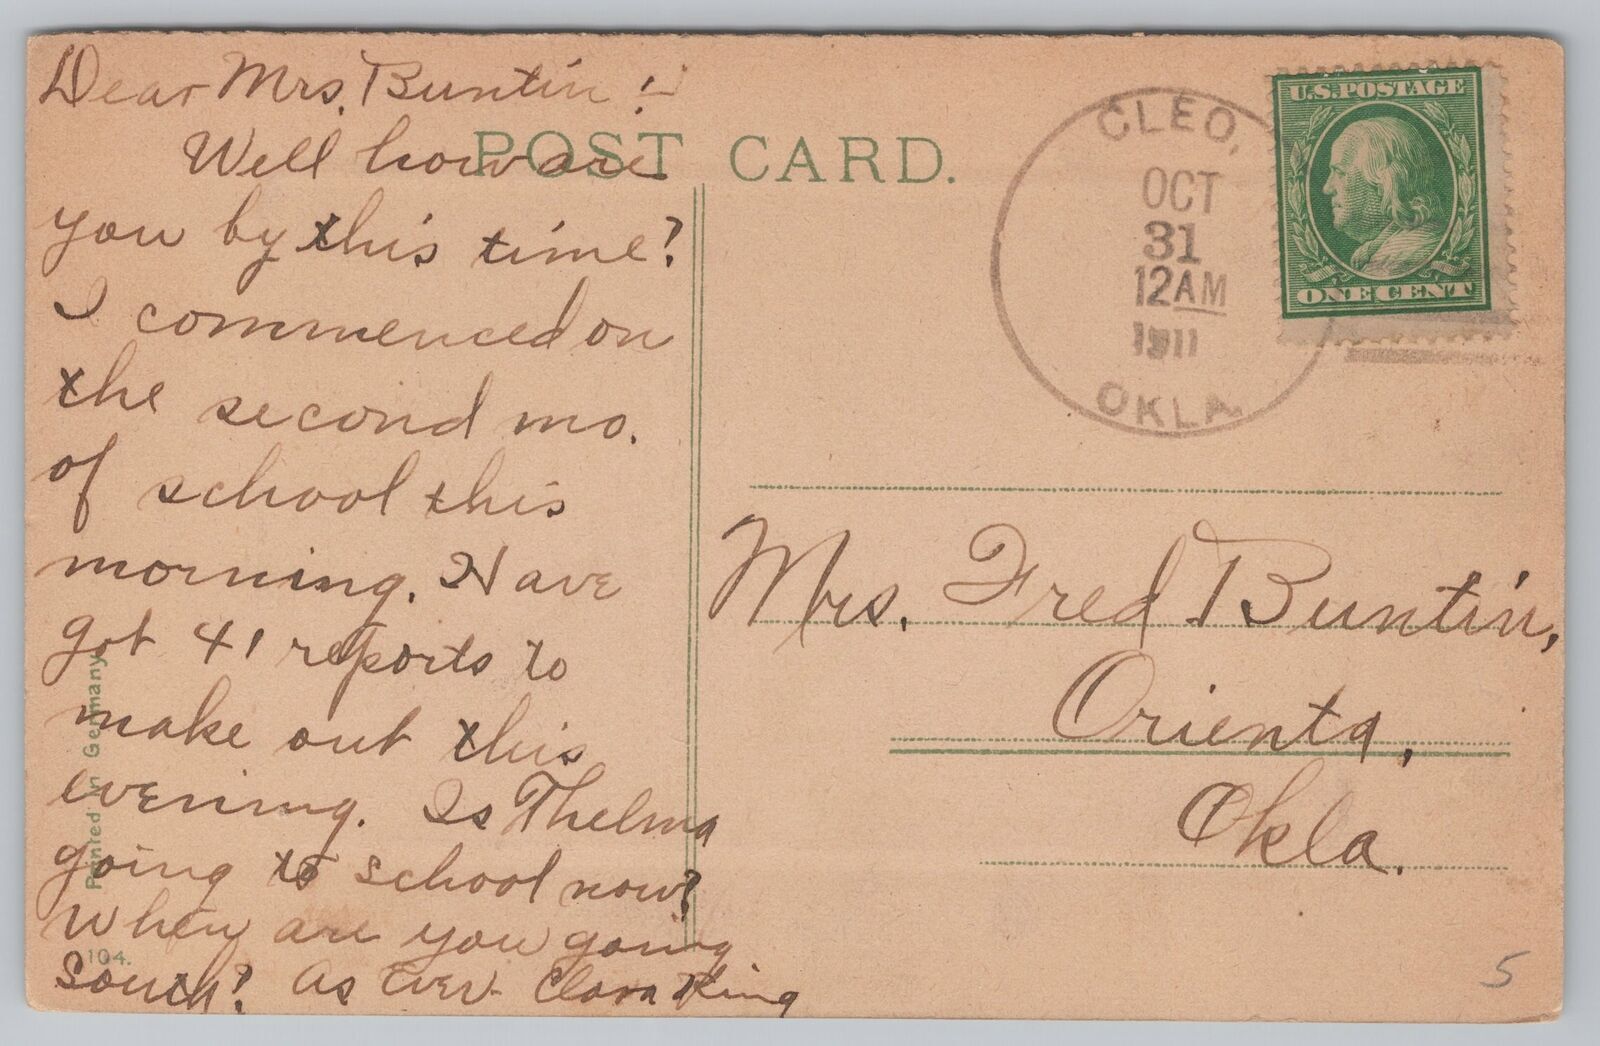 Dear Mrs. Buntin :-
Well how are
you by this time?
I commenced on
the second mo.
of school this
morning. Have
got 41 reports to
make out this
evening. Is Thelma
going to school now?
When are you going
South? As ever - Clara King
POST CARD.
CLEO,
OCT
31
12AM
1911
OKLA
U.S. POSTAGE
ONE CENT
Mrs. Fred Buntin,
Orienta,
Okla.
Printed in Germany
104.
5